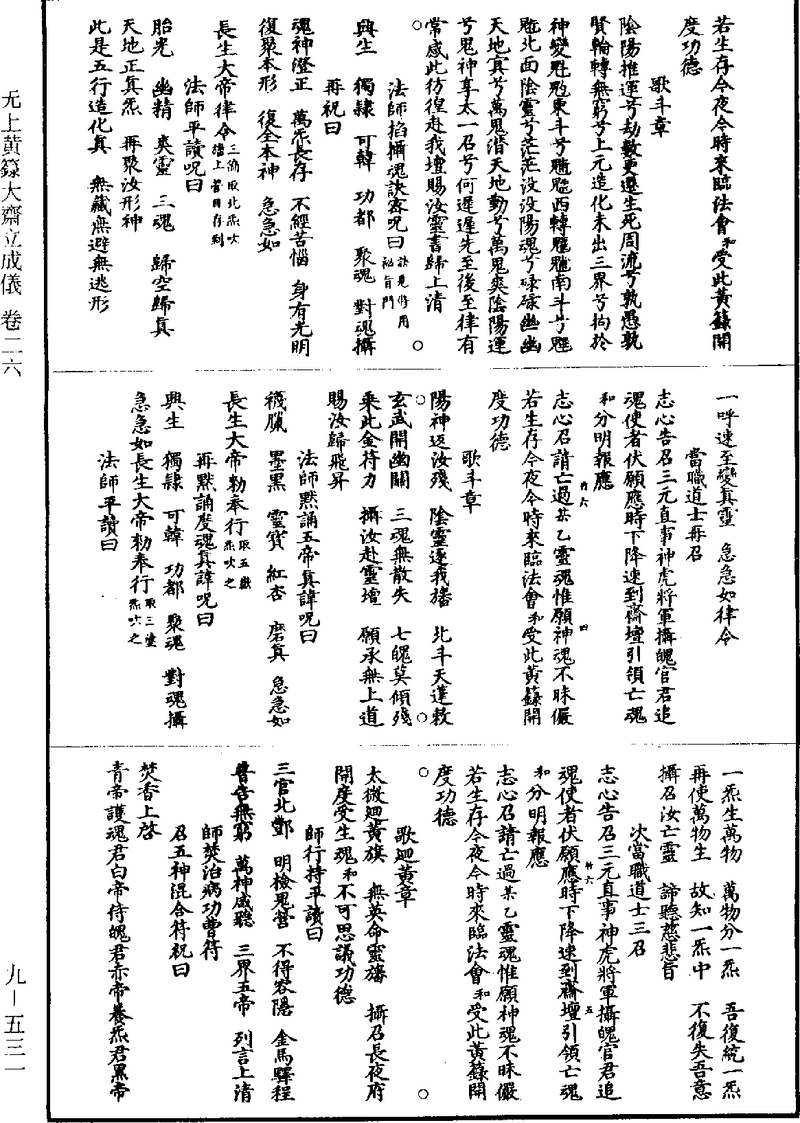 若生存今夜今時來臨法會和受此黃籙開
度功德
歌斗章
陰陽推運兮劫數更遷生死周流兮孰愚孰
賢輪轉無窮兮上元造化未出三界兮拘於
神變魁𩲃東斗兮
西轉
南斗兮
北面陰靈兮茫茫沒沒陽魂兮碌碌幽幽
天地冥兮萬鬼潛天地勤兮萬鬼奭陰陽運
兮鬼神享太一召兮何遲遲先至後至律有
常咸此彷徨赴我壇賜汝靈書歸上清
○ 法師掐攝魂訣密呪曰訣見修用祕旨門 ○
興生 獨隸 可韓 功都 聚魂 對魂攝
再祝曰
魂神澄正 萬炁長存 不經苦惱 身有光明
復聚本形 復全本神 急急如
長生大帝律令三滴取北炁吹旛上當目存到
法師平讀呪曰
胎光 幽精 爽靈 三魂 歸空歸真
天地正真炁 再聚汝形神
此是五行造化真 無藏無避無逃形
一呼速至變真靈 急急如律令
當職道士再召
志心告召三元直事神虎將軍攝魄官君追
魂使者伏願應時下降速到齋壇引領亡魂
和分明報應
志心召請亡過某乙靈魂惟願神魂不昧儼
若生存今夜今時來臨法會和受此黃籙開
度功德
歌斗章
陽神返汝殘 陰靈逐我旛 北斗天蓬敕
○玄武開幽關 三魂無散失 七魄莫傾殘○
乘此金符力 攝汝赴靈壇 願承無上道
賜汝歸飛昇
法師默誦五帝真諱呪曰
穢臘 墨黑 靈寶 紅杏 磨真 急急如
長生大帝勅奉行取五嶽炁吹之
再默誦度魂真諱呪曰
興生 獨隸 可韓 功都 聚魂 對魂攝
急急如長生大帝勅奉行取三臺炁吹之
法師平讀曰
一炁生萬物 萬物分一炁 吾復統一炁
再使萬物生 故知一炁中 不復失吾意
攝召汝亡靈 諦聽慈悲旨
次當職道士三召
志心告召三元直事神虎將軍攝魄官君追
魂使者伏願應時下降速到齋壇引領亡魂
和分明報應
志心召請亡過某乙靈魂惟願神魂不昧儼
若生存今夜今時來臨法會和受此黃籙開
度功德
○ 歌迴黃章 ○
太微迴黃旗 無英命靈旛 攝召長夜府
開度受生魂和不可思議功德
師行持平讀曰
三官北酆 明檢鬼營 不得容隱 金馬驛程
普告無窮 萬神咸聽 三界五帝 列言上清
師焚治病功曹符
召五神混合符祝曰
焚香上啓
青帝護魂君白帝侍魄君赤帝養炁君黑帝
无上黄籙大齋立成儀 卷二六
九－五三一